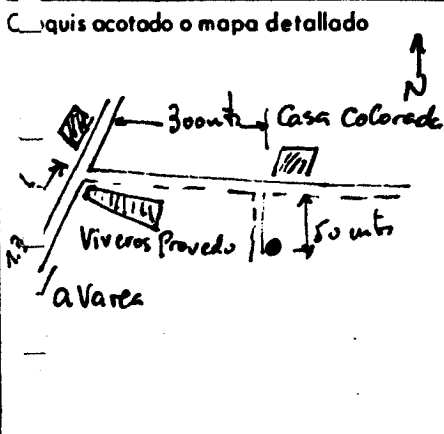 C__quis acotado o mapa detallado
N
300 mts
Casa Colorada
Viveros Provedo
50 mts
a Varea